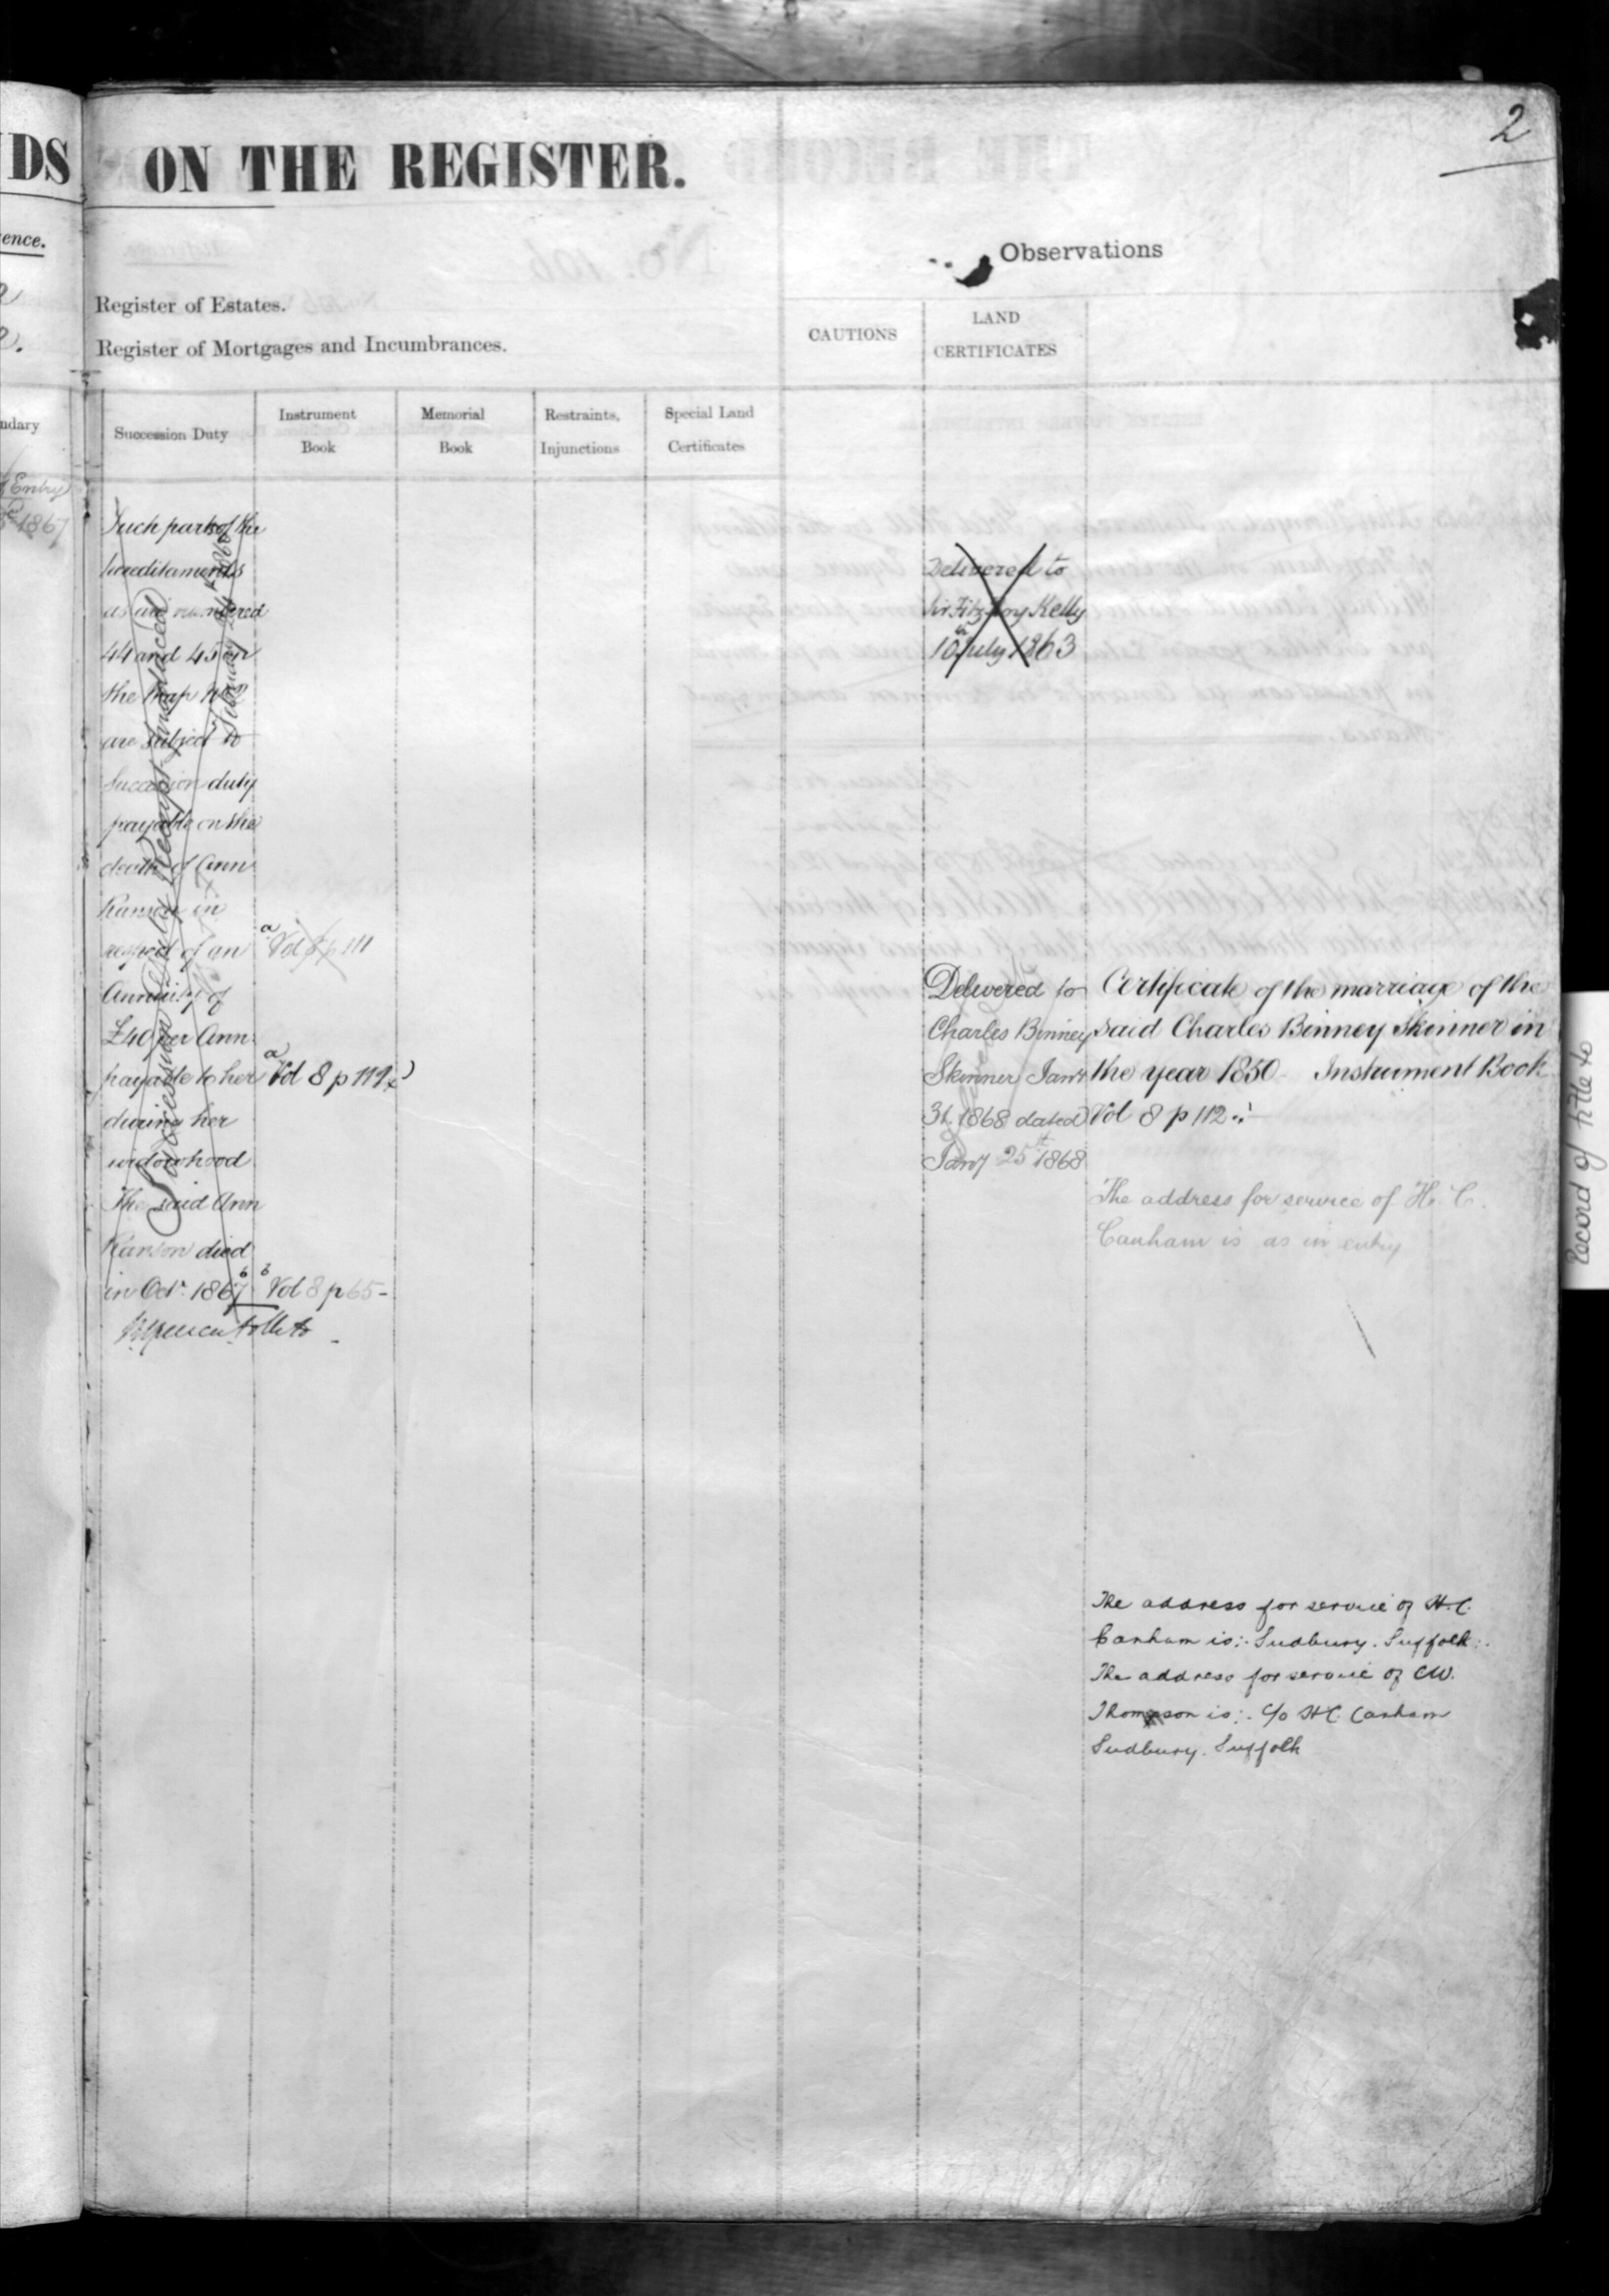 2
DS
ON THE REGISTER.
ence.
Observations
Register of Estates.
Register of Mortgages and Incumbrances.
CAUTIONS
LAND
CERTIFICATES
ndary
Succession Duty
Instrument
Book
Memorial
Book
Restraints,
Injunctions
Special Land
Certificates
Entry
1867
Such parts of the
hereditaments
as are numbered
44 and 45 on
the Map
are subject to
Succession duty
payable on the
death of Ann
Ranson in
respect of an
Annuity of
£40 per Ann
payable to her
during her
widowhood
The said Ann
Ranson died
in Octr. 1867
Succession Duty Receipt produced
a Vol 8 p 111
a Vol 8 p 111
b b Vol 8 p 65-
Delivered to
Sir Fitzroy Kelly
10th July 1863
Delivered to
Charles Binney
Skinner Jany
31. 1868 dated
Jany 25th 1868
Certificate of the marriage of the
said Charles Binney Skinner in
the year 1850 Instrument Book
Vol 8 p 112
The address for service of H. C.
Canham is as in entry
The address for service of H.C.
Canham is:. Sudbury. Suffolk:.
The address for service of CW.
Thompson is:. c/o H.C. Canham
Sudbury. Suffolk
Record of title to